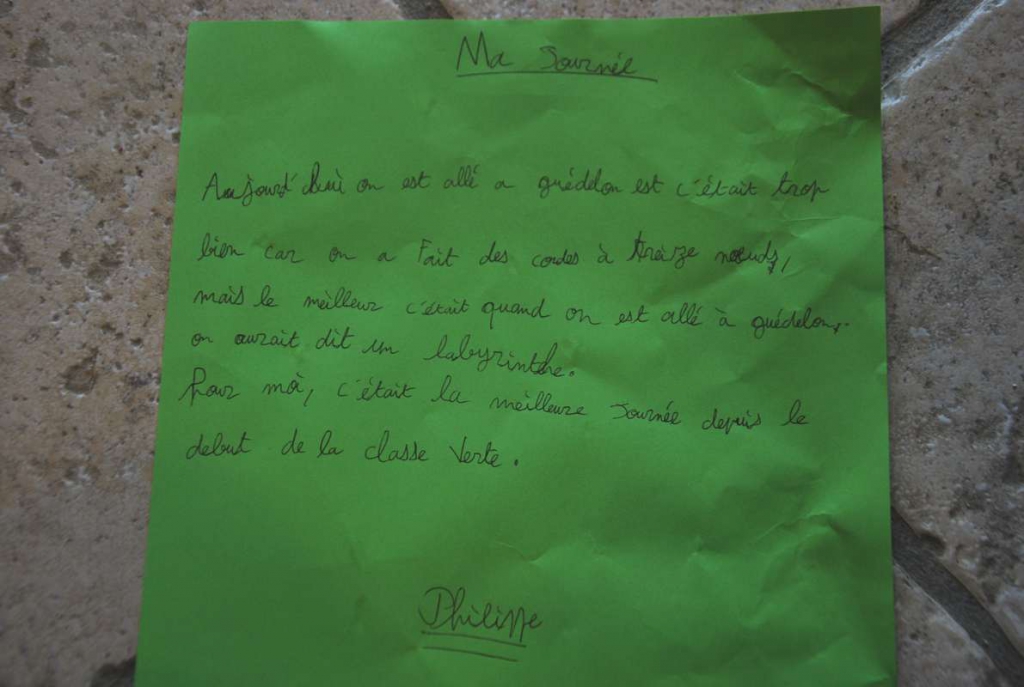 Ma Journée
Aujourd'hui on est allé a guédelon est c'était trop
bien car on a Fait des cordes à treize nœuds,
mais le meilleur c'était quand on est allé à guédelon,
on aurait dit un labyrinthe.
Pour moi, c'était la meilleure Journée depuis le
debut de la classe Verte.
Philippe